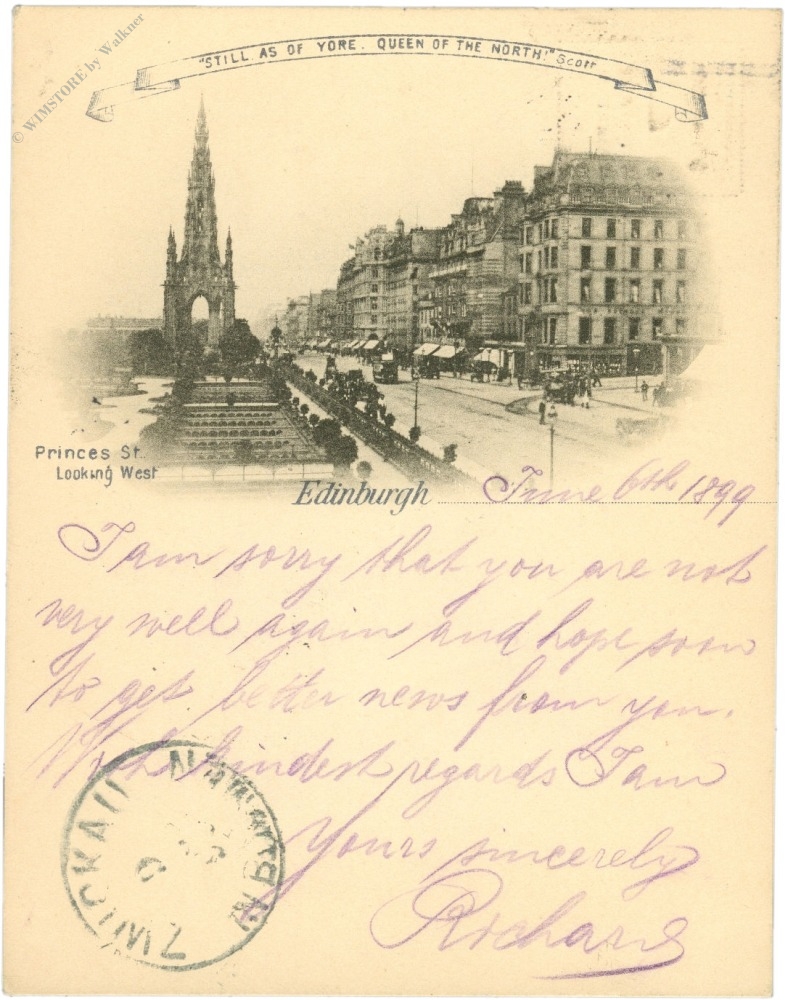 © WIMSTORE by Walkner
"STILL AS OF YORE. QUEEN OF THE NORTH!" Scott
Princes St.
Looking West
Edinburgh June 6th 1899
I am sorry that you are not
very well again and hope soon
to get better news from you.
With kindest regards I am
Yours sincerely
Richard
ZWICKAU